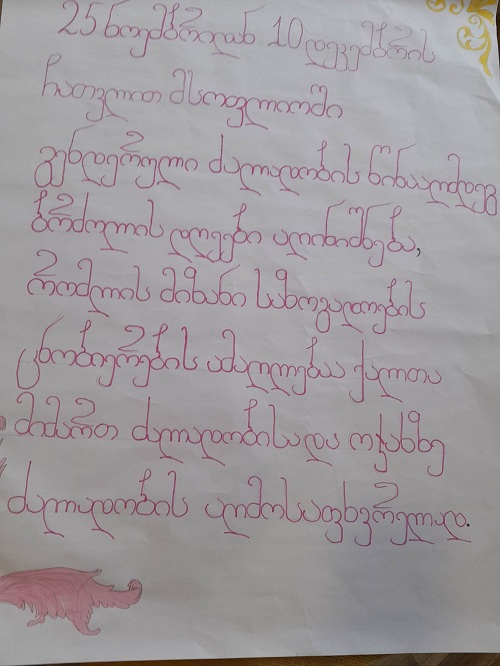 25 ნოემბრიდან 10 დეკემბრის
ჩათვლით მსოფლიოში
გენდერული ძალადობის წინააღმდეგ
ბრძოლის დღეები აღინიშნება,
რომლის მიზანი საზოგადოების
ცნობიერების ამაღლებაა ქალთა
მიმართ ძალადობისა და ოჯახზე
ძალადობის აღმოსაფხვრელად.